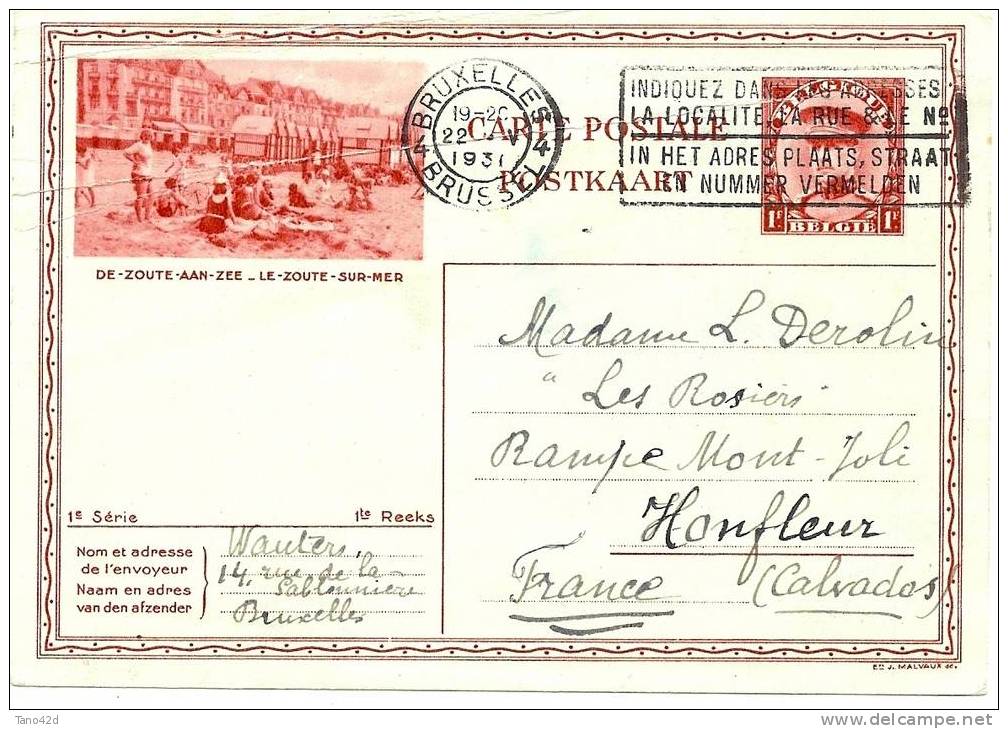 BRUXELLES 4
19-20
22 V
1931
4 BRUSSEL
INDIQUEZ DANS LES ADRESSES
LA LOCALITE LA RUE & LE No
IN HET ADRES PLAATS, STRAAT
EN NUMMER VERMELDEN
CARTE POSTALE
POSTKAART
BELGIQUE
1F BELGIË 1F
DE-ZOUTE-AAN-ZEE _ LE-ZOUTE-SUR-MER
Madame L. Derolin
"Les Rosiers
Rampe Mont-Joli
Honfleur
France (Calvados)
1e Série 1te Reeks
Nom et adresse
de l'envoyeur
Naam en adres
van den afzender
Wauters,
14, rue de la
Sablonnière
Bruxelles
Ed J. MALVAUX
Tano42d
www.delcampe.net